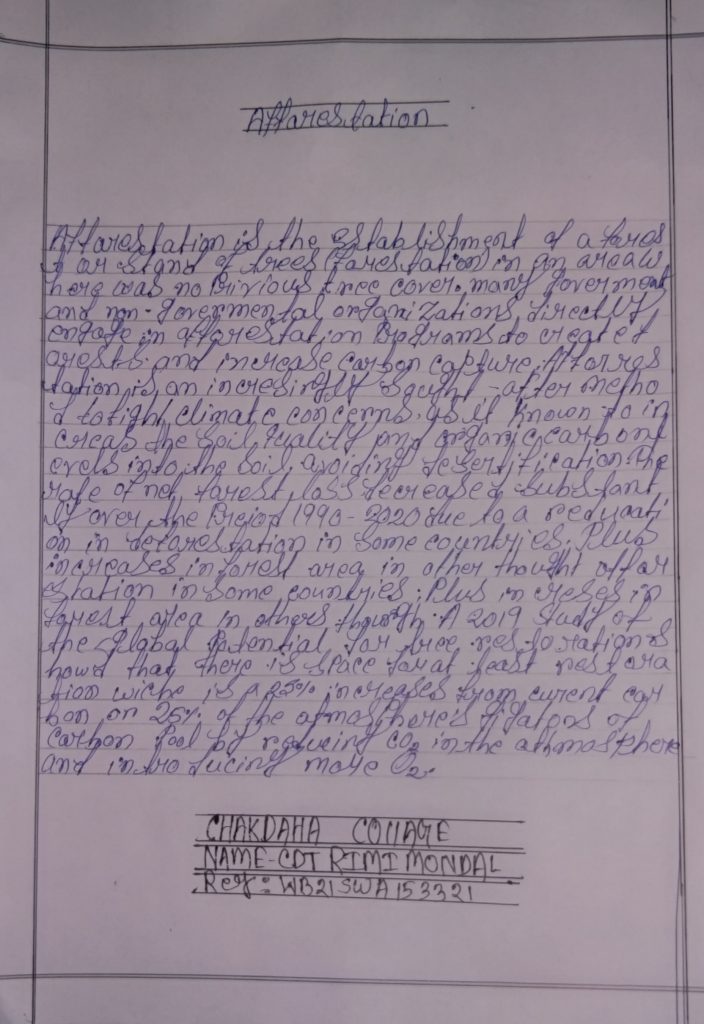 Afforestation
Afforestation is the establishment of a fores
t or stand of trees (forestation) in an area w
here was no Privious tree cover. many goverment
and non-govermental organizations directly
engage in afforestation Programs to create f
orests and increase carbon capture. Afforres
tation is an incresingly sought-after metho
d to fight climatic concerns, as it known to in
creas the soil quality and organic carbon l
evels into the soil, avoiding desertification. The
rate of net forest loss decreased substant
ily over the Preiod 1990-2020 due to a reducti
on in deforestation in some countries. Plus
increases in forest area in other thought affor
station in some countries; Plus increses in
forest area in others though. A 2019 study of
the Global Potential for tree restoration s
howd that there is space for at least restora
tion wiche is a 25% increases from curent car
bon or 25% of the atmosphere's of
carbon Pool by reducing CO2 in the athmosphere
and introducing more O2.
CHAKDAHA COllAGE
NAME-CDT RIMI MONDAL
Reg: WB21SWA153321